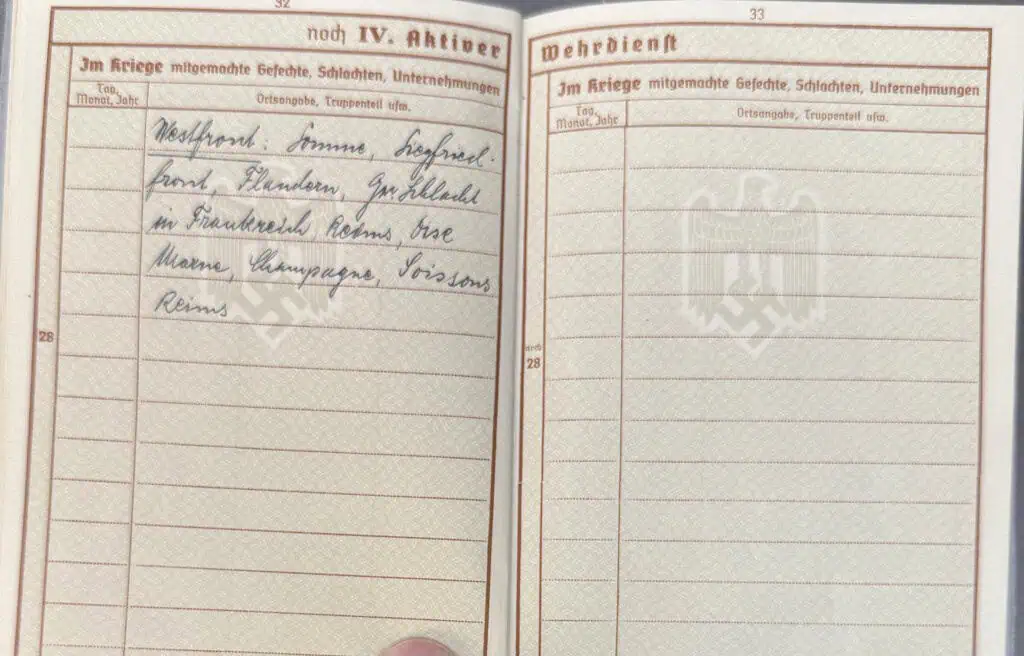 32
noch IV. Aktiver
Im Kriege mitgemachte Gefechte, Schlachten, Unternehmungen
Tag, Monat, Jahr
Ortsangabe, Truppenteil usw.
Westfront: Somme, Siegfried-
front, Flandern, Gr. Schlacht
in Frankreich, Reims, Oise
Marne, Champagne, Soissons
Reims
28
33
Wehrdienst
Im Kriege mitgemachte Gefechte, Schlachten, Unternehmungen
Tag, Monat, Jahr
Ortsangabe, Truppenteil usw.
noch
28